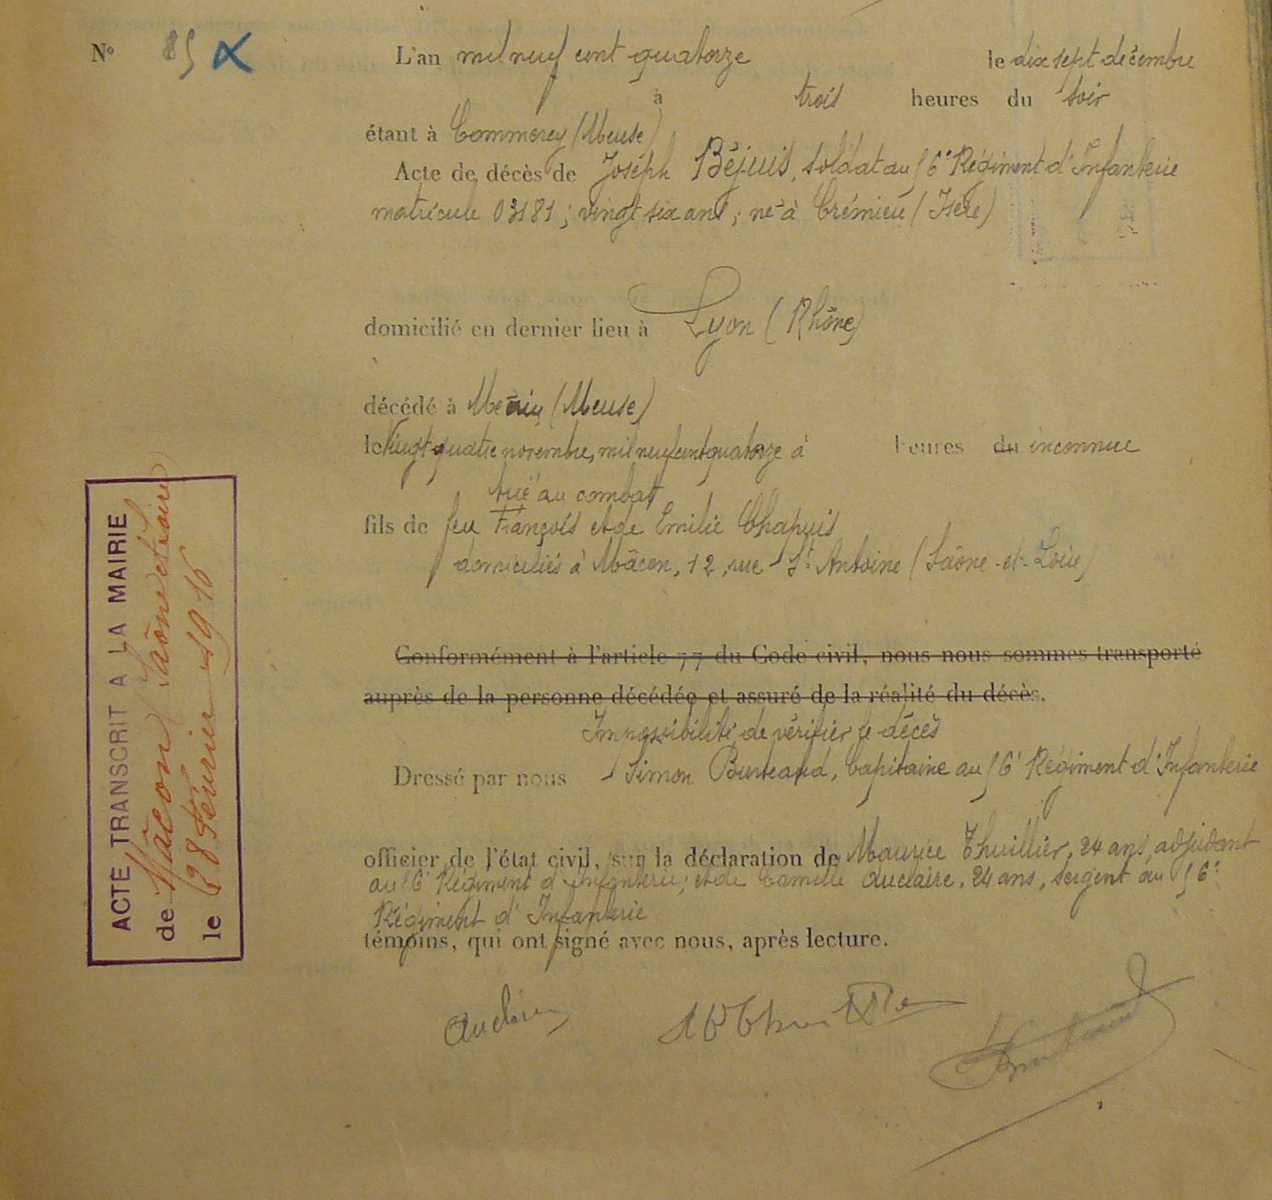 N° 85
L'an mil neuf cent quatorze le dix sept décembre
à trois heures du soir
étant à Commercy (Meuse)
Acte de décès de Joseph Béjuis, soldat au 56e Régiment d'Infanterie
matricule 03181 ; vingt six ans, né à Crémieu (Isère)
domicilié en dernier lieu à Lyon (Rhône)
décédé à (Meuse)
le vingt quatre novembre, mil neuf cent quatorze à heures du inconnue
tué au combat
fils de feu François et de Emilie Chapuis
domiciliés à Mâcon, 12, rue St Antoine (Saône-et-Loire)
Conformément à l'article 77 du Code civil, nous nous sommes transporté
auprès de la personne décédée et assuré de la réalité du décès.
Impossibilité de vérifier le décès
Dressé par nous Simon Burtaud, Capitaine au 56e Régiment d'Infanterie
officier de l'état civil, sur la déclaration de Maurice Thuillier, 24 ans, adjudant
au 56e Régiment d'Infanterie, et de Camille Auclaire, 24 ans, sergent au 56e
Régiment d'Infanterie
témoins, qui ont signé avec nous, après lecture.
Auclaire
ACTE TRANSCRIT A LA MAIRIE
de Mâcon (Saône et Loire)
le 28 février 1916